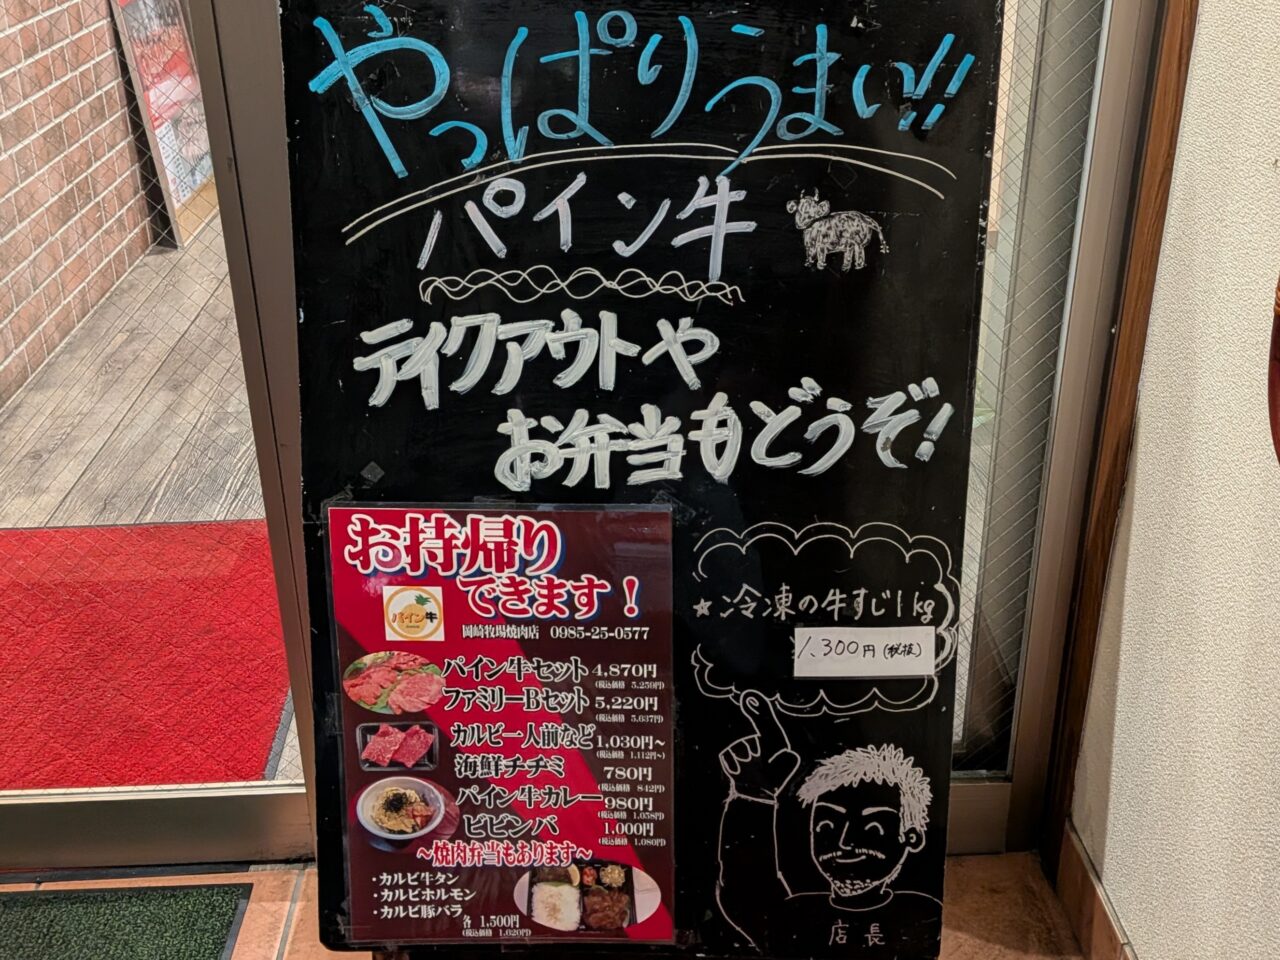 やっぱりうまい!!
パイン牛
テイクアウトや
お弁当もどうぞ!
お持帰り
できます！
パイン牛
岡崎牧場焼肉店 0985-25-0577
パイン牛セット 4,870円
(税込価格 5,259円)
ファミリーBセット 5,220円
(税込価格 5,637円)
カルビ一人前など 1,030円~
(税込価格 1,112円~)
海鮮チヂミ 780円
(税込価格 842円)
パイン牛カレー 980円
(税込価格 1,058円)
ビビンバ 1,000円
(税込価格 1,080円)
~焼肉弁当もあります~
・カルビ牛タン
・カルビホルモン
・カルビ豚バラ
各 1,500円
(税込価格 1,620円)
★冷凍の牛すじ1kg
1,300円(税抜)
店長